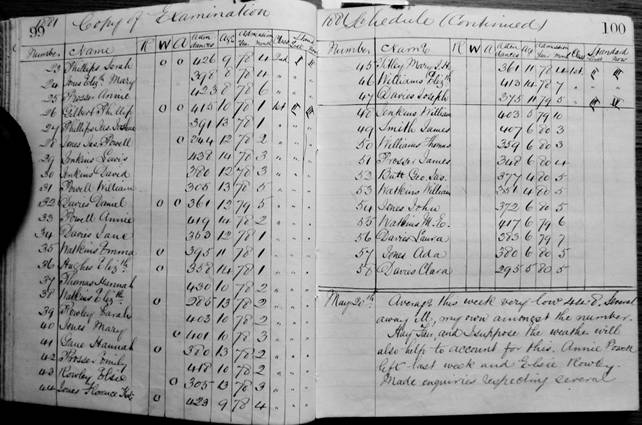 99
1881
Copy of Examination
Number Name R W A Attendances Age Admission Year Month Class
23 Phillips Sarah 0 0 426 9 78 4 2nd
24 Jones Elizth Mary 398 8 78 4
25 Prosser Annie 423 8 78 6
26 Gilbert Phillip 0 0 415 10 78 1 1st
27 391 13 78 1
28 Jones Jas. Powell 0 244 12 78 2
29 Jenkins Lewis 438 14 78 3
30 Jenkins David 380 12 78 3
31 Powell William 305 13 78 5
32 Davies Daniel 0 0 361 12 79 5
33 Powell Annie 419 14 78 2
34 Davies Jane 353 12 78 1
35 Watkins Emma 0 395 11 78 1
36 Hughes Elizth 0 358 14 78 1
37 Thomas Hannah 430 10 78 2
38 Watkins Elizth 0 285 13 78 2
39 Rowley Sarah 403 10 78 2
40 Jones Mary 0 401 10 78 3
41 Lane Hannah 0 380 13 78 2
42 Prosser Emily 418 10 78 2
43 Rowley Elsie 0 305 13 78 3
44 Jones Florence 423 9 78 4
100
1881 Schedule (Continued)
Number Name R W A Attendances Age Admission Year Month Class Standard
45 Mary 361 11 78 12 1st
46 Williams Elizth 413 12 78 7
47 Davies Joseph 373 11 79 5
48 Jenkins William 403 5 79 10
49 Smith James 407 6 80 3
50 Williams Thomas 359 6 80 3
51 Prosser James 348 6 80 4
52 Butt Geo. Jas. 377 4 80 5
53 Watkins William 351 4 80 5
54 Jones John 372 6 80 5
55 Watkins M. E. 417 6 79 6
56 Davies Laura 383 6 79 7
57 Jones Ada 380 6 80 5
58 Davies Clara 295 5 80 5
May 20th Average this week very low 44.8. Several
away ill, my own amongst the number.
Hay Fair, and I suppose the weather will
also help to account for this. Annie Powell
left last week and Elsie Rowley.
Made enquiries respecting several